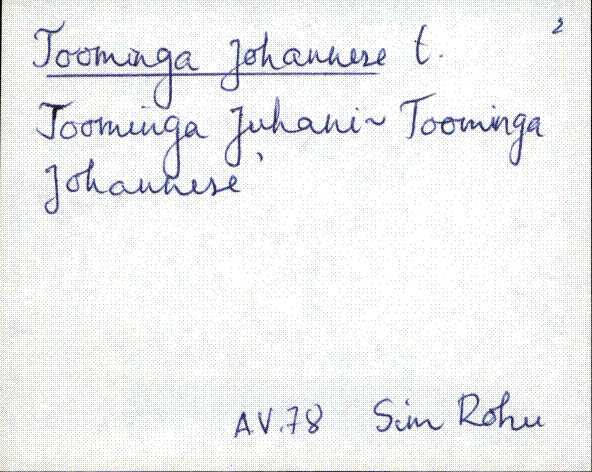 2
Toominga Johannese t.
Toominga Juhani ~ Toominga
Johannese
A.V.78 Sim Rohu